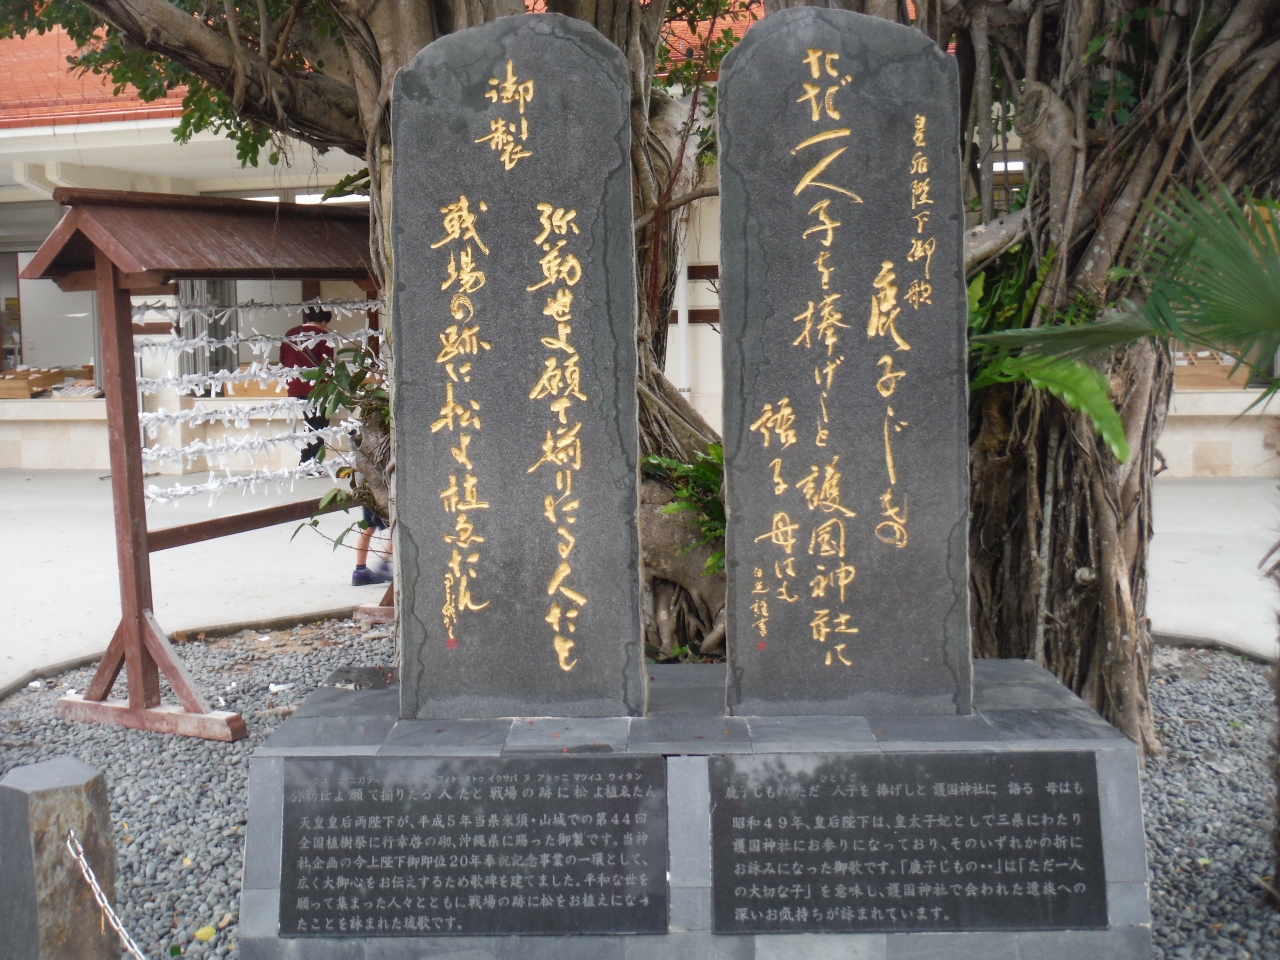 皇后陛下御歌
鹿子じもの
ただ一人子を捧げしと護国神社に
語る母はも
御製
弥勒世よ願て揃りたる人たと
戦場の跡に松よ植ゑたん
フィトゥタトゥ イクサバ ヌ アトゥニ マツィユ ウィタン
弥勒世よ願て揃りたる人たと戦場の跡に松よ植ゑたん
天皇皇后両陛下が、平成5年当県米須・山城での第44回
全国植樹祭に行幸啓の砌、沖縄県に賜った御製です。当神
社企画の今上陛下御即位20年奉祝記念事業の一環として、
広く大御心をお伝えするため歌碑を建てました。平和な世を
願って集まった人々とともに戦場の跡に松をお植えになっ
たことを詠まれた琉歌です。
ひとりご
鹿子じもの ただ一人子を捧げしと護国神社に 語る 母はも
昭和49年、皇后陛下は、皇太子妃として三県にわたり
護国神社にお参りになっており、そのいずれかの折に
お詠みになった御歌です。「鹿子じもの・・」は「ただ一人
の大切な子」を意味し、護国神社で会われた遺族への
深いお気持ちが詠まれています。